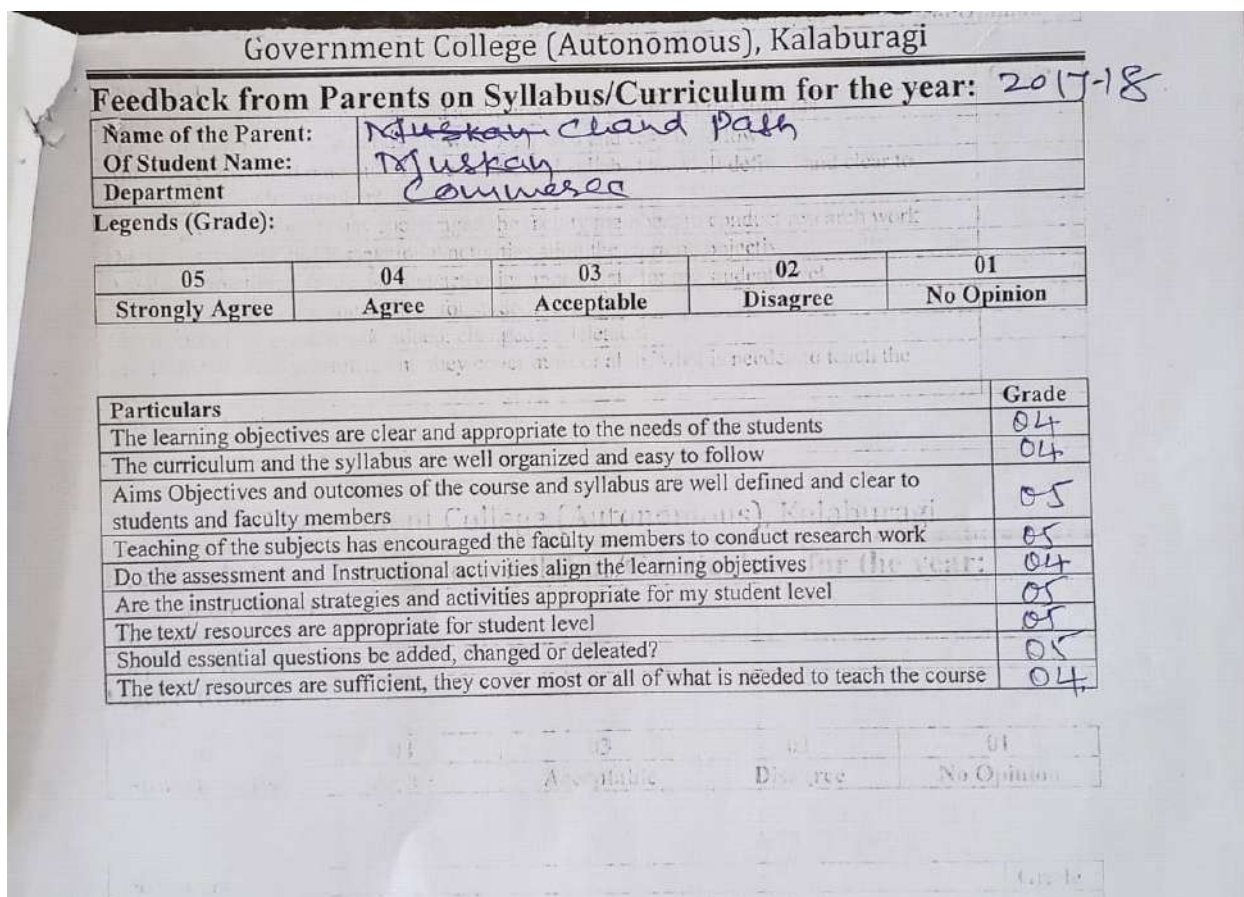 Government College (Autonomous), Kalaburagi
Feedback from Parents on Syllabus/Curriculum for the year: 2017-18
Name of the Parent: Muskan Chand Pash
Of Student Name: Muskan
Department
Legends (Grade):
05 04 03 02 01
Strongly Agree Agree Acceptable Disagree No Opinion
Particulars Grade
The learning objectives are clear and appropriate to the needs of the students 04
The curriculum and the syllabus are well organized and easy to follow 04
Aims Objectives and outcomes of the course and syllabus are well defined and clear to
students and faculty members 05
Teaching of the subjects has encouraged the faculty members to conduct research work 05
Do the assessment and Instructional activities align the learning objectives 04
Are the instructional strategies and activities appropriate for my student level 05
The text/ resources are appropriate for student level 05
Should essential questions be added, changed or deleated? 05
The text/ resources are sufficient, they cover most or all of what is needed to teach the course 04